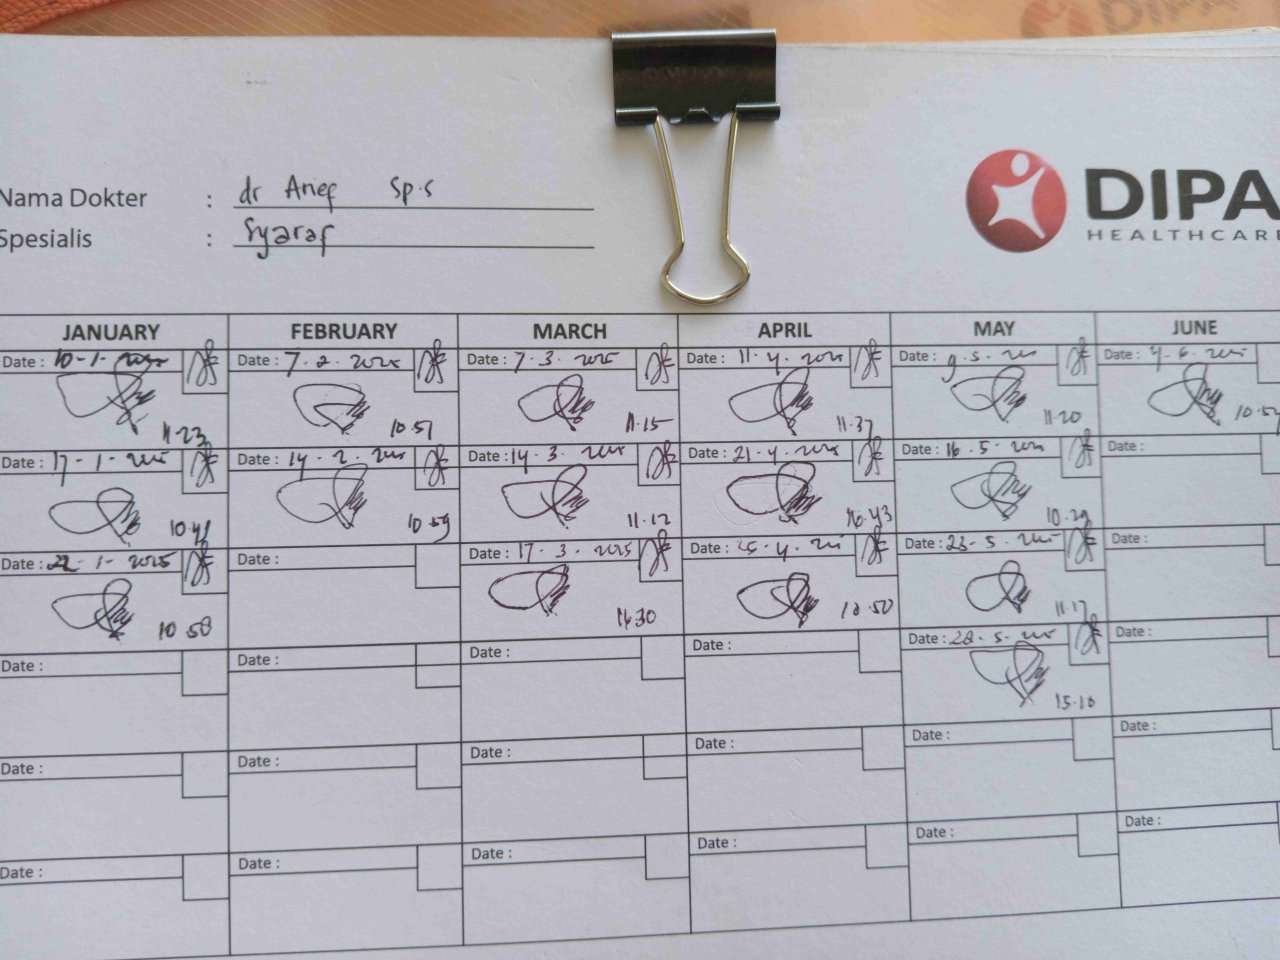 DIPA
Nama Dokter : dr Arief Sp.S
Spesialis : Syaraf
DIPA
HEALTHCARE
JANUARY FEBRUARY MARCH APRIL MAY JUNE
Date : 10-1- Date : 7-2-2025 Date : 7-3-2025 Date : 11-4-2025 Date : 9-5-2025 Date : 4-6-2025
11.23 10.51 11.15 11.37 11.20
Date : 17-1-2025 Date : 14-2-2025 Date : 14-3-2025 Date : 21-4-2025 Date : 16-5-2025 Date :
10.59 11.12 10.29
Date : 22-1-2025 Date : Date : 17-3-2025 Date : 25-4-2025 Date : 23-5-2025 Date :
10.50 11.17
Date : Date : Date : Date : Date : 28-5-2025 Date :
15.10
Date : Date : Date : Date : Date : Date :
Date : Date : Date : Date : Date : Date :